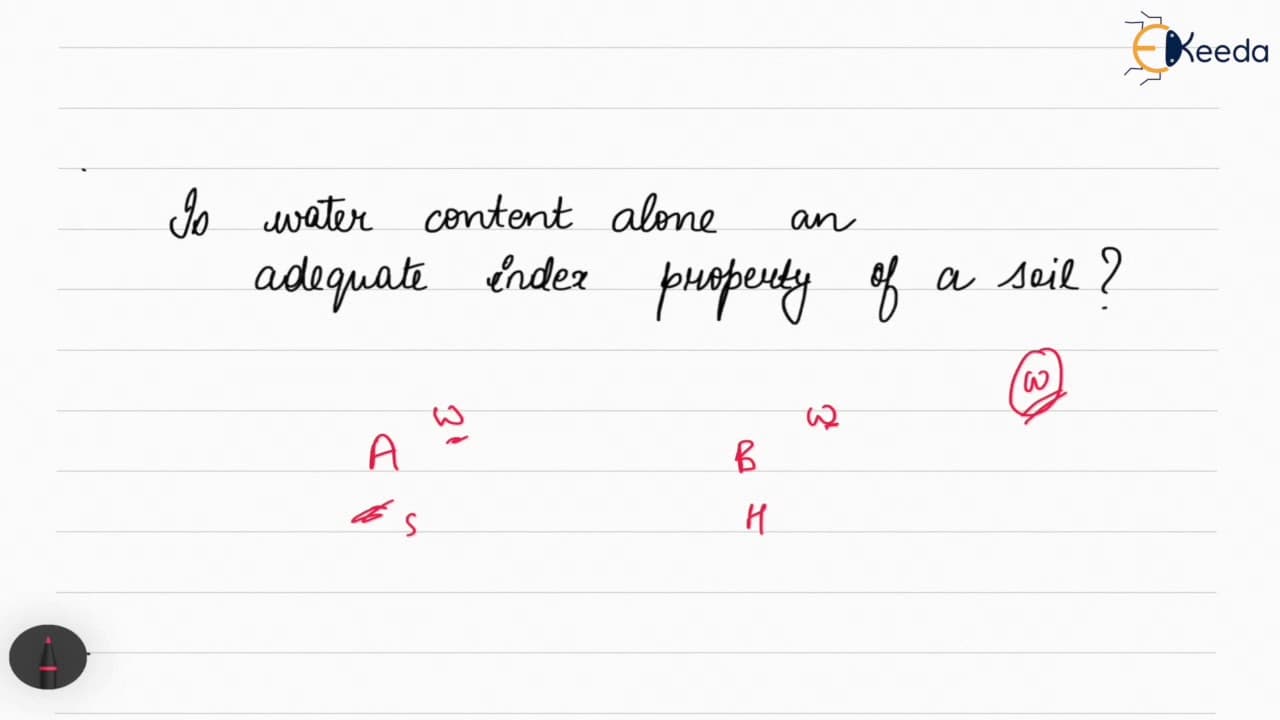 EKeeda
Is water content alone an
adequate index property of a soil?
w
w w
A B
S H